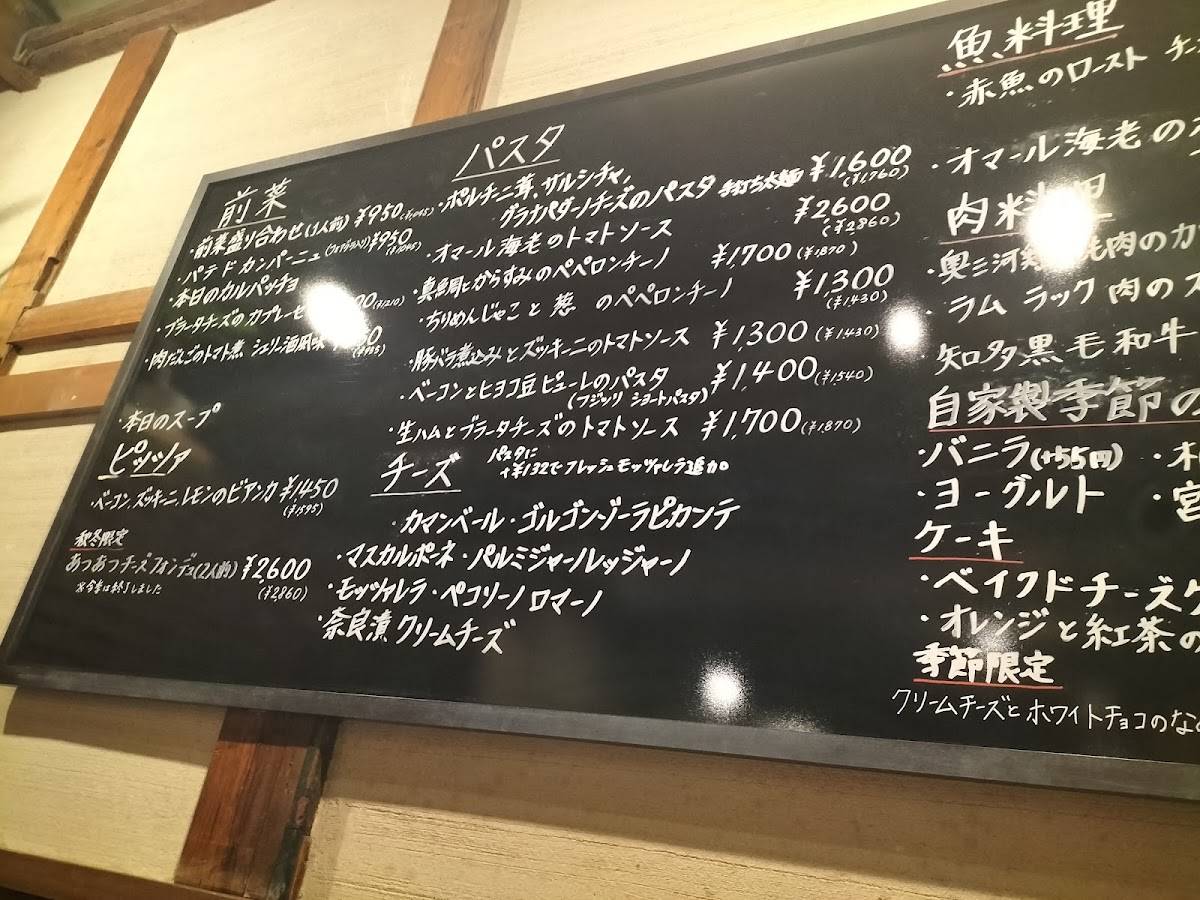 前菜
・前菜盛り合わせ(1人前) ¥950(¥1,045)
・パテドカンパーニュ ¥950(¥1,045)
・本日のカルパッチョ
・ブラータチーズのカプレーゼ (¥1,210)
・肉だんごのトマト煮 シェリー酒風味
・本日のスープ
ピッツァ
・ベーコン、ズッキーニ、レモンのビアンカ ¥1,450
(¥1595)
秋冬限定
あつあつチーズフォンデュ(2人前) ¥2600
(¥2,860)
※今季は終了しました
パスタ
・ポルチーニ茸、サルシッチャ、
グラナパダーノチーズのパスタ 手打ち太麺 ¥1,600
(¥1,760)
・オマール海老のトマトソース ¥2600
(¥2860)
・真鯛とからすみのペペロンチーノ ¥1,700(¥1,870)
・ちりめんじゃこと 葱 のペペロンチーノ ¥1,300
(¥1,430)
・豚バラ煮込みとズッキーニのトマトソース ¥1,300(¥1,430)
・ベーコンとヒヨコ豆ピューレのパスタ ¥1,400(¥1540)
(フジッリ ショートパスタ)
・生ハムとブラータチーズのトマトソース ¥1,700(¥1,870)
パスタに
+¥132でフレッシュモッツァレラ追加
チーズ
・カマンベール・ゴルゴンゾーラピカンテ
・マスカルポーネ・パルミジャーノレッジャーノ
・モッツァレラ・ペコリーノロマーノ
・奈良漬クリームチーズ
魚料理
・赤魚のロースト チ
・オマール海老の
肉料理
・奥三河鶏 焼肉の
・ラム ラック肉の
知多黒毛和牛
自家製季節の
・バニラ(+55円)
・ヨーグルト ・宮
ケーキ
・ベイクドチーズケ
・オレンジと紅茶の
季節限定
クリームチーズとホワイトチョコのなめ